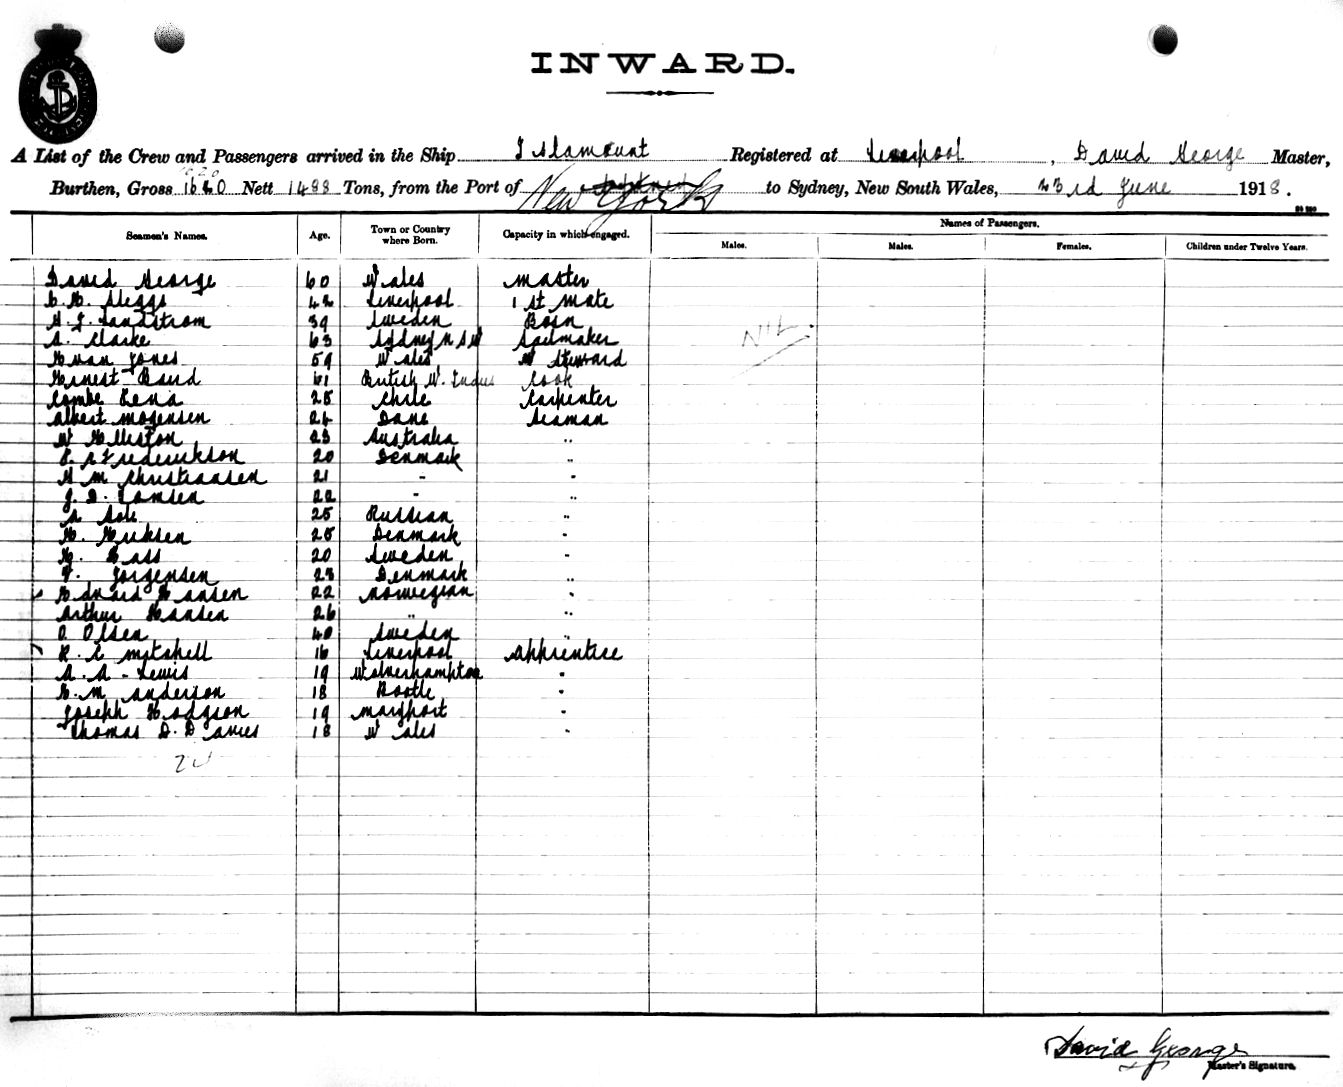 INWARD.
A List of the Crew and Passengers arrived in the Ship Islamount Registered at Liverpool, David George Master,
Burthen, Gross 1620 Nett 1488 Tons, from the Port of New York to Sydney, New South Wales, 23rd June 1918.
Seamen's Names. Age. Town or Country where Born. Capacity in which engaged. Names of Passengers.
Males. Males. Females. Children under Twelve Years.
David George 60 Wales Master
42 Liverpool 1st Mate
A. J. Sandstrom 39 Sweden Bosn
A. Clarke 63 Sydney N S W Sailmaker
Evan Jones 59 Wales Steward
NIL.
Ernest Baird 61 British W. Indies Cook
Combe Rena 25 Chile Carpenter
Albert Mogensen 24 Dane Seaman
W Elliston 23 Australia "
Frederickson 20 Denmark "
A M Christiansen 21 - "
J. D. 22 - "
A 25 Russian "
H. Eriksen 25 Denmark "
E. Bass 20 Sweden "
F. Jorgensen 23 Denmark "
Edward Hansen 22 Norwegian "
Arthur Hansen 26 " "
O. Olsen 40 Sweden "
R. E Mitchell 16 Liverpool Apprentice
A. A - Lewis 19 Wolverhampton "
E. M Anderson 18 Bootle "
Joseph Hodgson 19 Maryport "
Thomas D. Davies 18 Wales "
24
David George
Master's Signature.